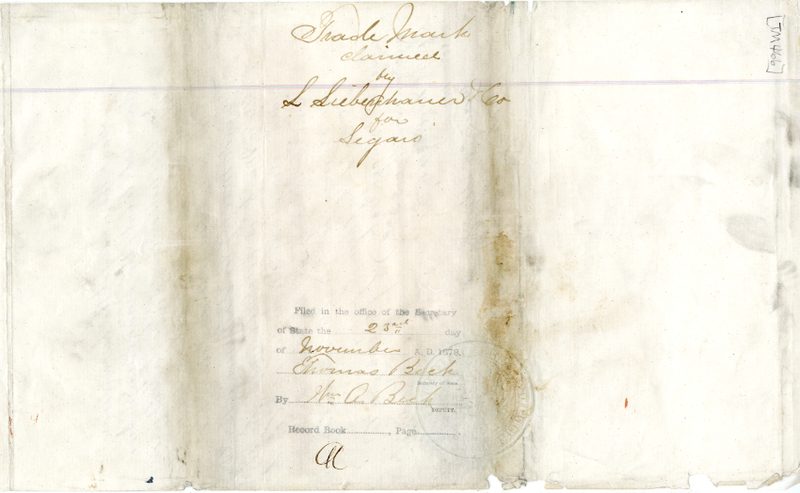 Trade Mark
claimed
by
L Siebenhauer & Co
for
Segars
[TM 466]
Filed in the office of the Secretary
of State the 23rd day
of November A. D. 1878,
Thomas Beck
Secretary of State
By Wm A. Beck
DEPUTY.
Record Book , Page